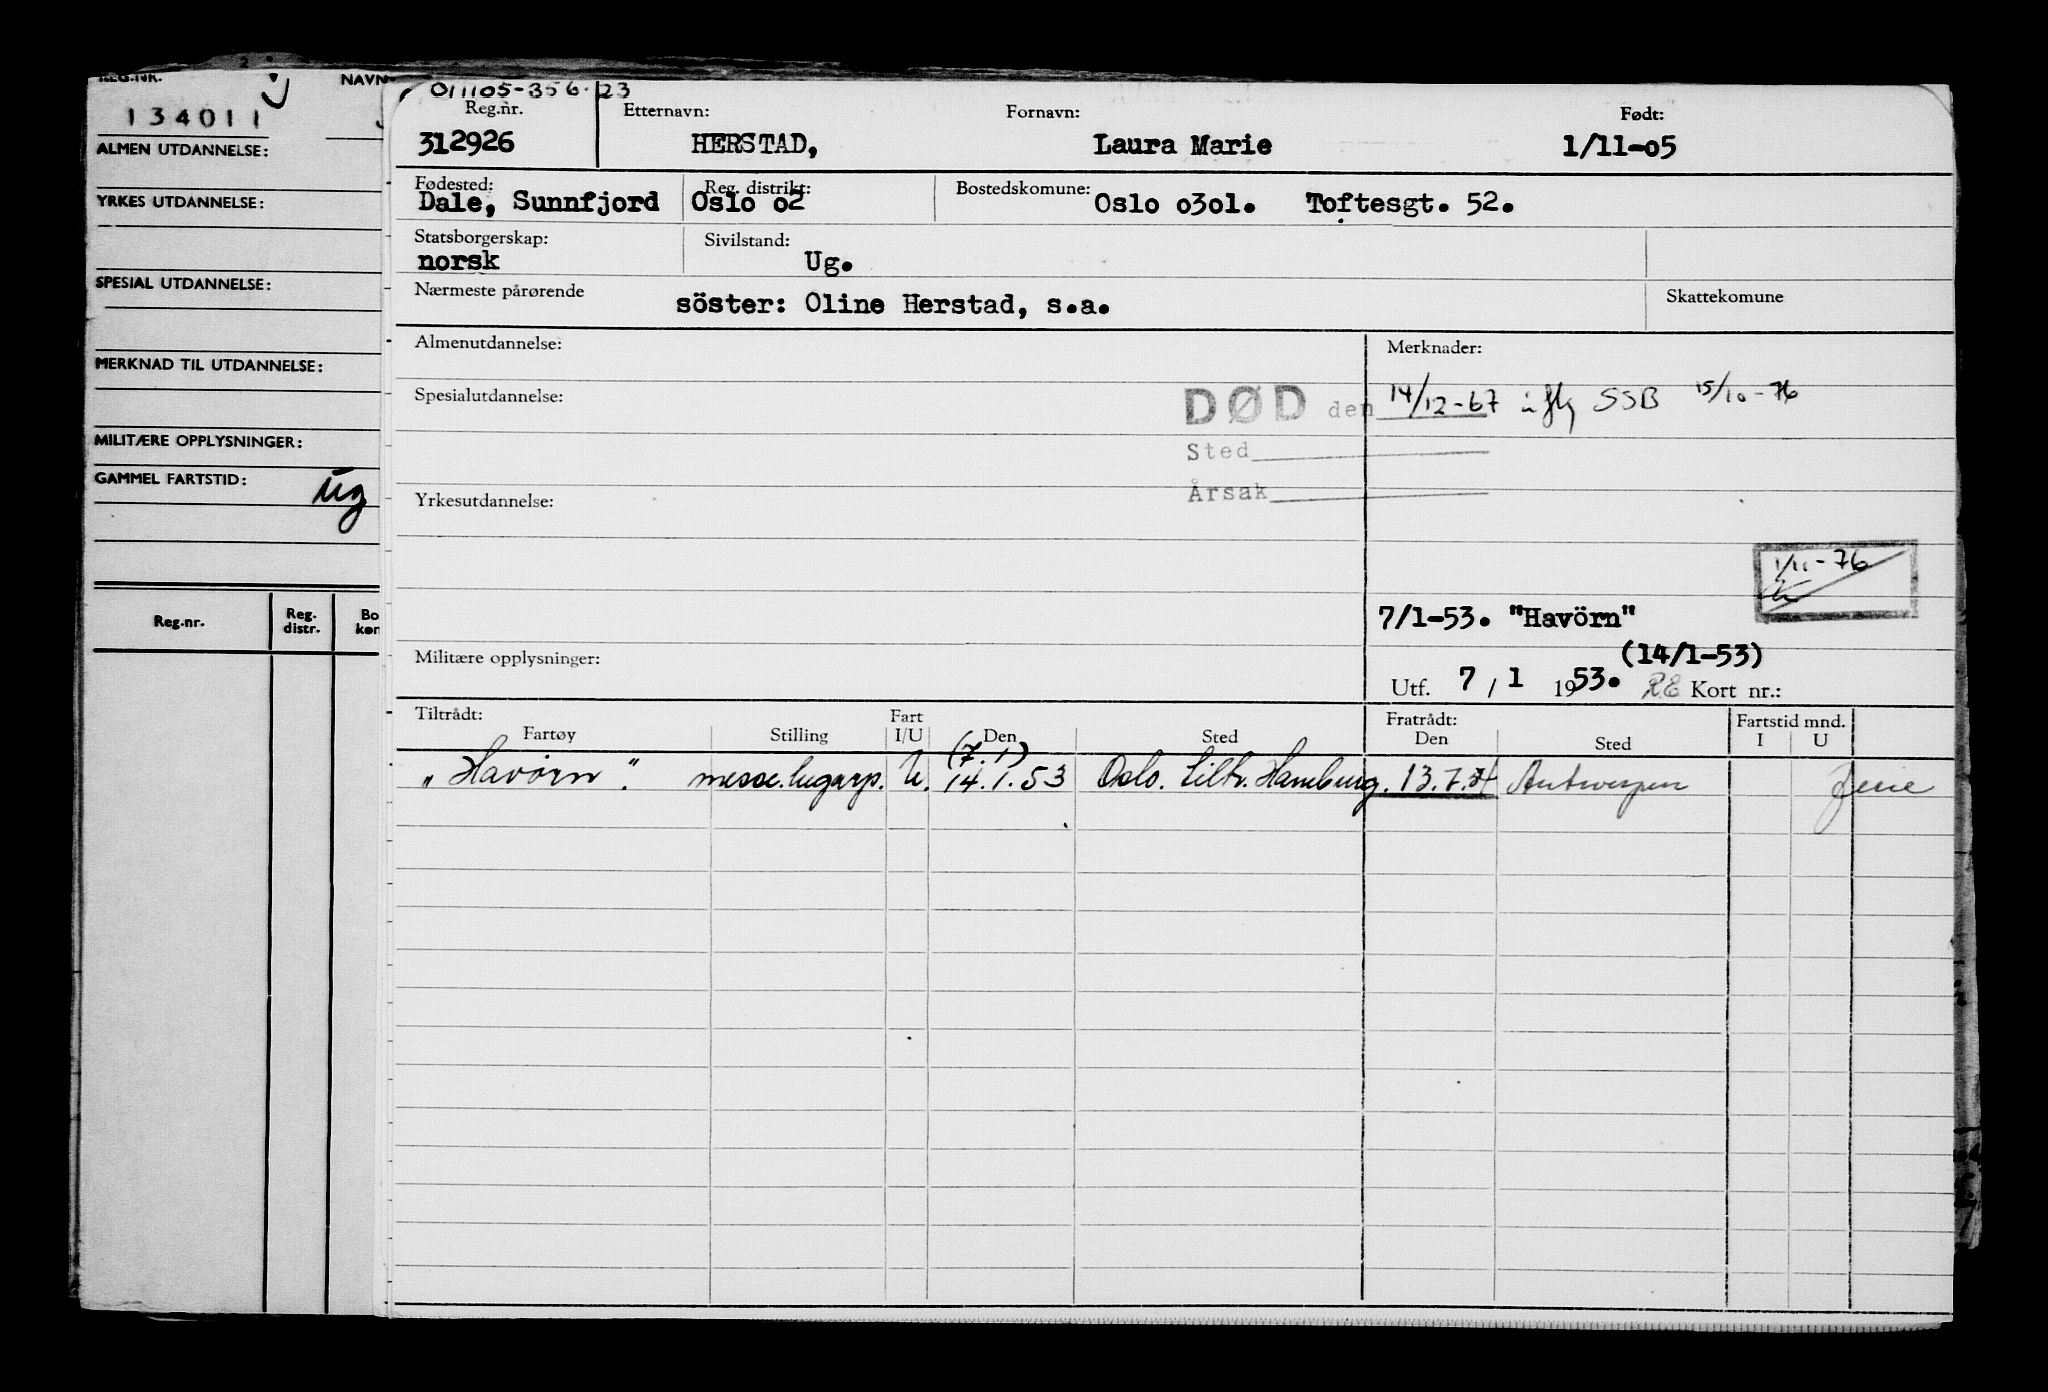 REG.NR. NAVN
134011
ALMEN UTDANNELSE:
YRKES UTDANNELSE:
SPESIAL UTDANNELSE:
MERKNAD TIL UTDANNELSE:
MILITÆRE OPPLYSNINGER:
GAMMEL FARTSTID:
ug
Reg.nr. Reg. distr. Bo kon
011105-356.23
Reg.nr. Etternavn: Fornavn: Født:
312926 HERSTAD, Laura Marie 1/11-05
Fødested: Reg. distrikt: Bostedskomune:
Dale, Sunnfjord Oslo o2 Oslo o3o1. Toftesgt. 52.
Statsborgerskap: Sivilstand:
norsk Ug.
Nærmeste pårørende söster: Oline Herstad, s.a. Skattekomune
Almenutdannelse: Merknader:
Spesialutdannelse: DØD den 14/12-67 SSB 15/10-76
Sted
Årsak
Yrkesutdannelse:
1/11-76
7/1-53. "Havörn"
(14/1-53)
Militære opplysninger: Utf. 7 / 1 1953. RE Kort nr.:
Tiltrådt: Fart Fratrådt: Fartstid mnd.
Fartøy Stilling I/U Den Sted Den Sted I U
(7.1)
"Havörn". messe.lugarp. U. 14.1.53 Oslo. Tiltr. Hamburg. 13.7.54 Antwerpen ferie